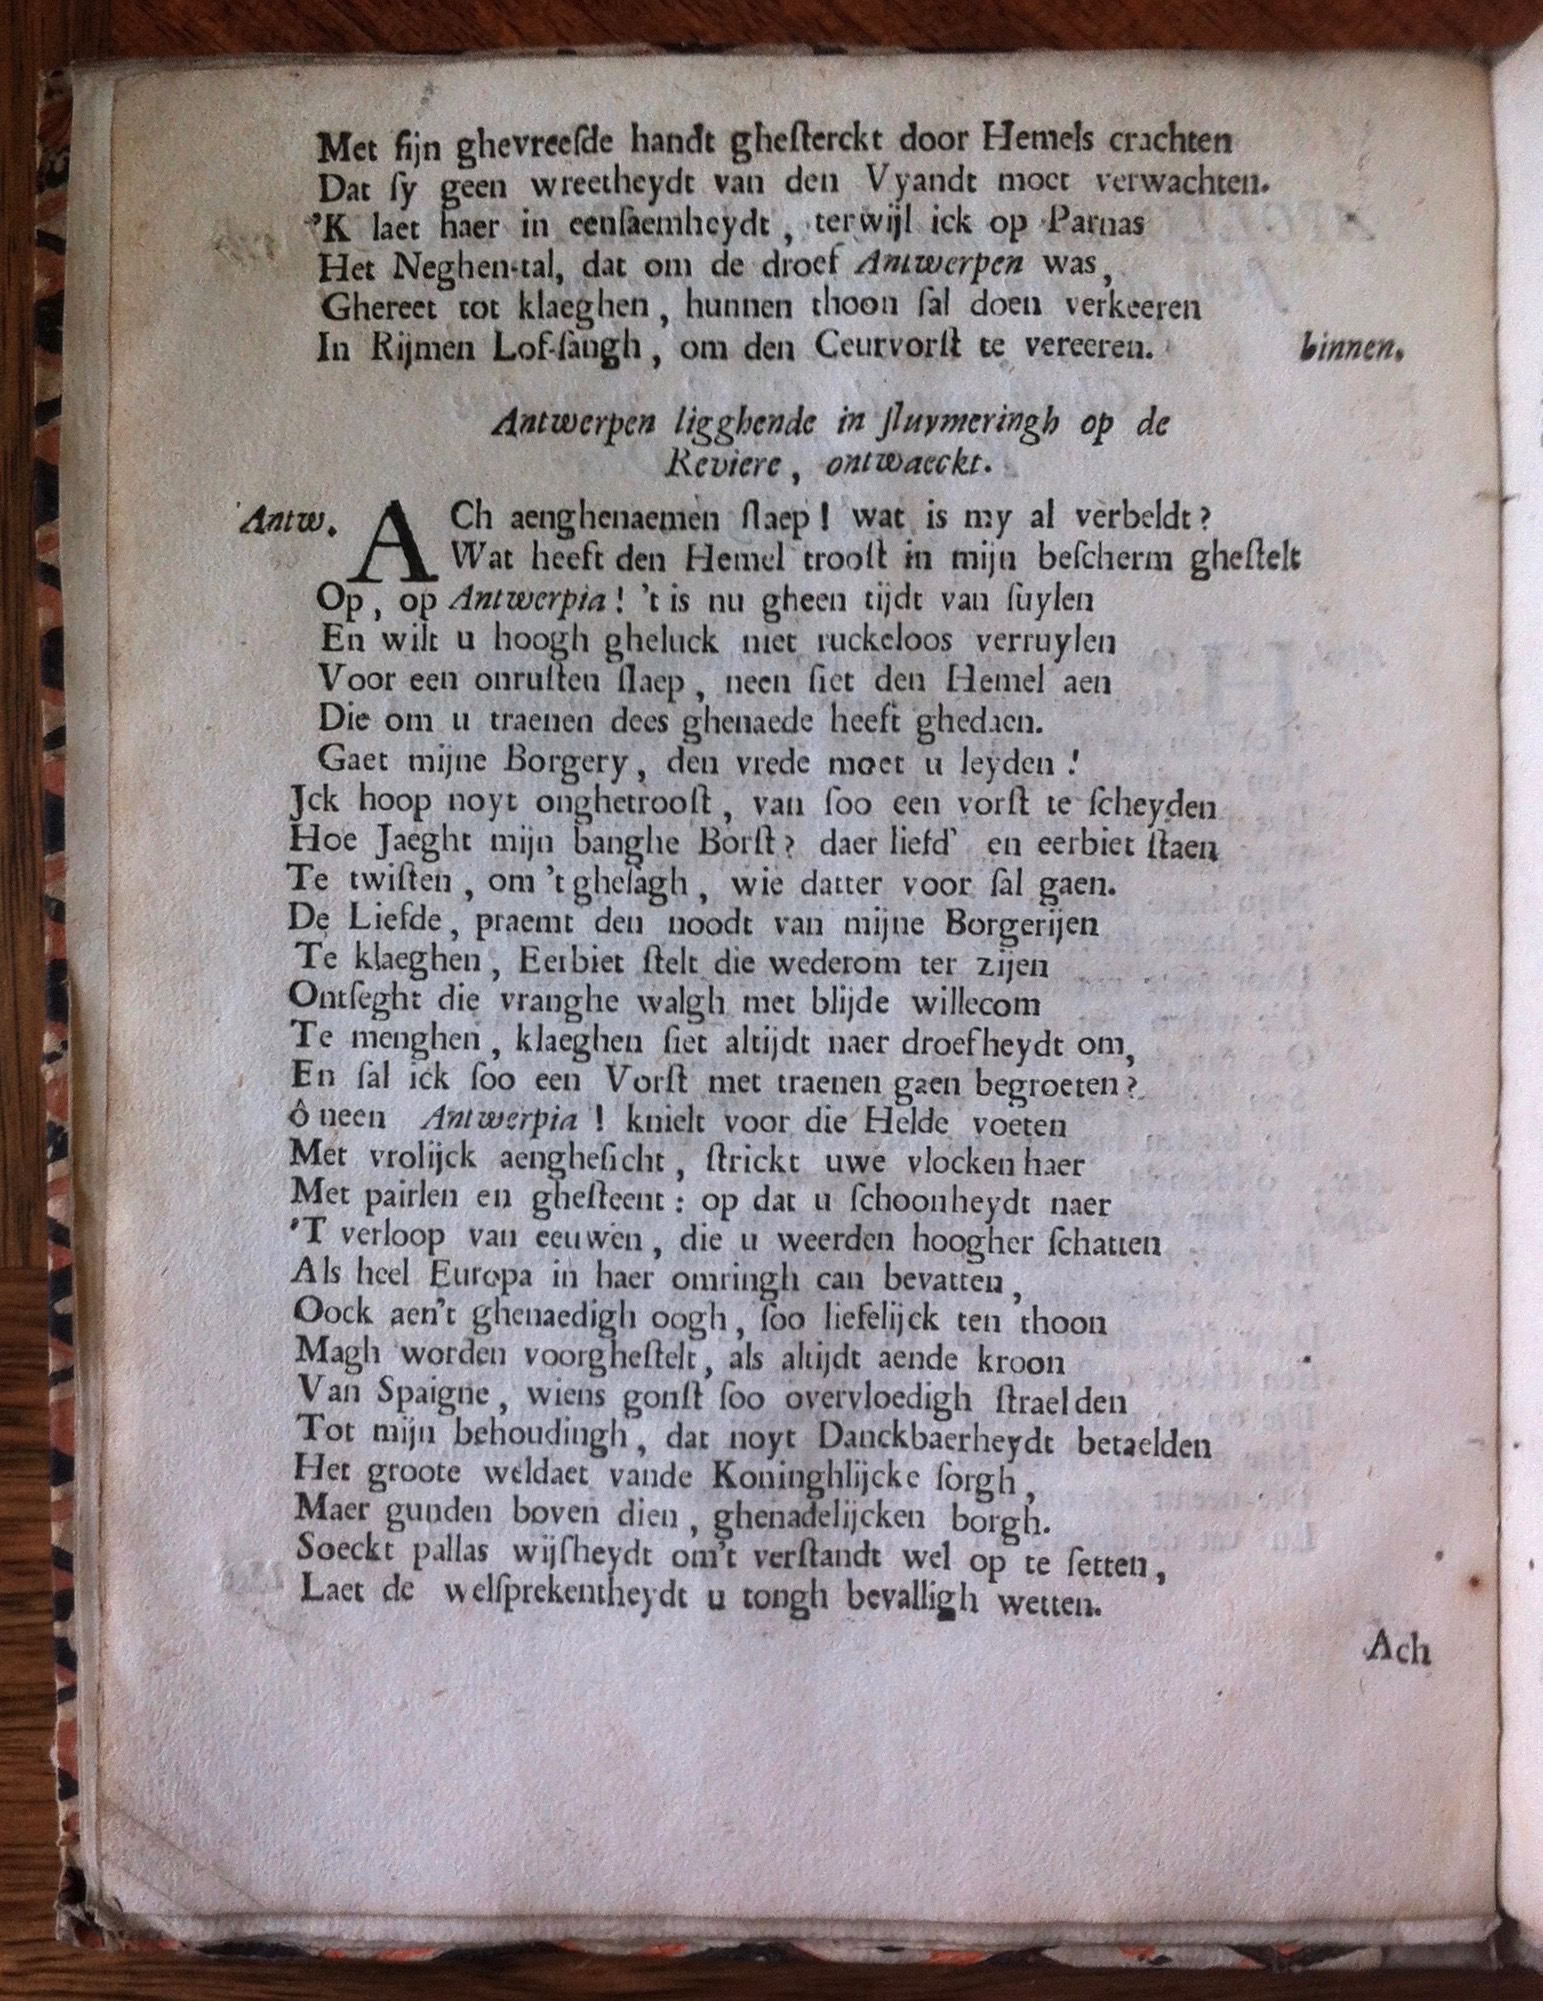 Met ſijn ghevreeſde handt gheſterckt door Hemels crachten
Dat ſy geen wreetheydt van den Vyandt moet verwachten.
'K laet haer in eenſaemheydt, terwijl ick op Parnas
Het Neghen-tal, dat om de droef Antwerpen was,
Ghereet tot klaeghen, hunnen thoon ſal doen verkeeren
In Rijmen Lof-ſangh, om den Ceurvorſt te vereeren. binnen.
Antwerpen ligghende in ſluymeringh op de
Reviere, ontwaeckt.
Antw. ACh aenghenaemen ſlaep! wat is my al verbeldt?
Wat heeft den Hemel trooſt in mijn beſcherm gheſtelt
Op, op Antwerpia! 't is nu gheen tijdt van ſuylen
En wilt u hoogh gheluck niet ruckeloos verruylen
Voor een onruſten ſlaep, neen ſiet den Hemel aen
Die om u traenen dees ghenaede heeft ghedaen.
Gaet mijne Borgery, den vrede moet u leyden!
Jck hoop noyt onghetrooſt, van ſoo een vorſt te ſcheyden
Hoe Jaeght mijn banghe Borſt? daer liefd' en eerbiet ſtaen
Te twiſten, om 't gheſagh, wie datter voor ſal gaen.
De Liefde, praemt den noodt van mijne Borgerijen
Te klaeghen, Eerbiet ſtelt die wederom ter zijen
Ontſeght die vranghe walgh met blijde willecom
Te menghen, klaeghen ſiet altijdt naer droefheydt om,
En ſal ick ſoo een Vorſt met traenen gaen begroeten?
ô neen Antwerpia! knielt voor die Helde voeten
Met vrolijck aengheſicht, ſtrickt uwe vlocken haer
Met pairlen en gheſteent: op dat u ſchoonheydt naer
'T verloop van eeuwen, die u weerden hoogher ſchatten
Als heel Europa in haer omringh can bevatten,
Oock aen't ghenaedigh oogh, ſoo liefelijck ten thoon
Magh worden voorgheſtelt, als altijdt aende kroon
Van Spaigne, wiens gonſt ſoo overvloedigh ſtraelden
Tot mijn behoudingh, dat noyt Danckbaerheydt betaelden
Het groote weldaet vande Koninghlijcke ſorgh,
Maer gunden boven dien, ghenadelijcken borgh.
Soeckt pallas wijſheydt om't verſtandt wel op te ſetten,
Laet de welſprekentheydt u tongh bevalligh wetten.
Ach